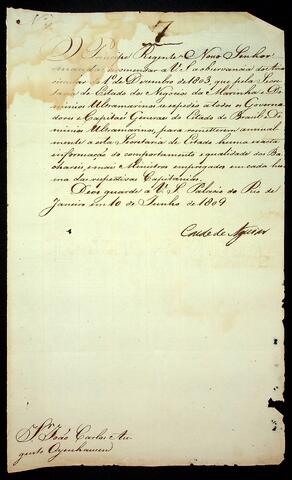 7
O Principe Regente Nosso Senhor
manda recomendar a V. S.a a observancia do Avizo
circular de 1.º de Dezembro de 1803, que pela Secre-
taria de Estado dos Negocios da Marinha e Do-
minios Ultramarinos se expedio a todos os Governa-
dores e Capitães Generaes do Estado do Brasil e Do-
minios Ultramarinos, para remetterem annual-
mente a esta Secretaria de Estado huma exacta
informação do comportamento e qualidade dos Ba-
chareis, e mais Ministros empregados em cada hu-
ma das respectivas Capitanias.
Deos guarde a V. S. Palacio do Rio de
Janeiro em 10 de Junho de 1809
Conde de Aguiar
S.r João Carlos Au-
gusto Oyenhausen